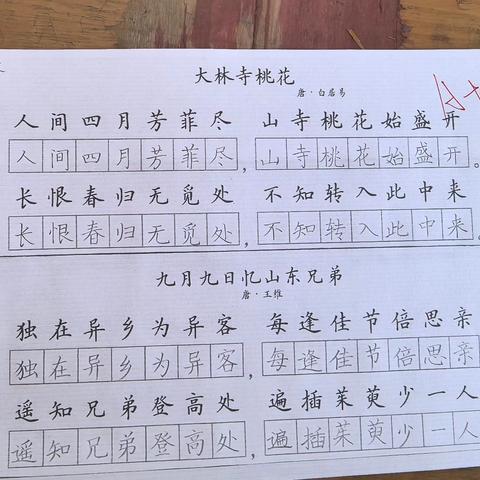 大林寺桃花
唐·白居易
A+
人间四月芳菲尽 山寺桃花始盛开
人间四月芳菲尽,山寺桃花始盛开。
长恨春归无觅处 不知转入此中来
长恨春归无觅处,不知转入此中来。
九月九日忆山东兄弟
唐·王维
独在异乡为异客 每逢佳节倍思亲
独在异乡为异客,每逢佳节倍思亲
遥知兄弟登高处 遍插茱萸少一人
遥知兄弟登高处,遍插茱萸少一人